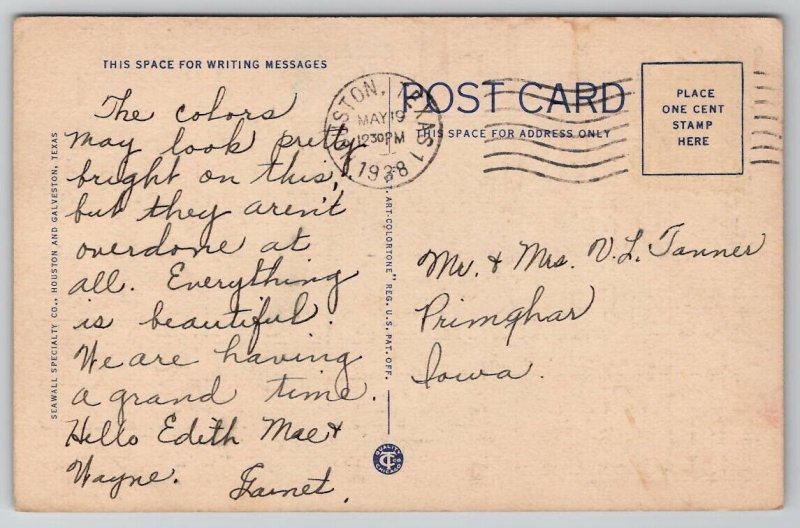 THIS SPACE FOR WRITING MESSAGES
The colors
may look pretty
bright on this,
but they aren't
overdone at
all. Everything
is beautiful.
We are having
a grand time.
Hello Edith Mae &
Wayne.
SEAWALL SPECIALTY CO., HOUSTON AND GALVESTON, TEXAS
STON, TEXAS 1
MAY 19
1230 PM
1938
ART-COLORTONE" REG. U.S. PAT. OFF.
QUALITY
CHICAGO
POST CARD
THIS SPACE FOR ADDRESS ONLY
PLACE
ONE CENT
STAMP
HERE
Mr. & Mrs. V. L. Tanner
Primghar
Iowa.